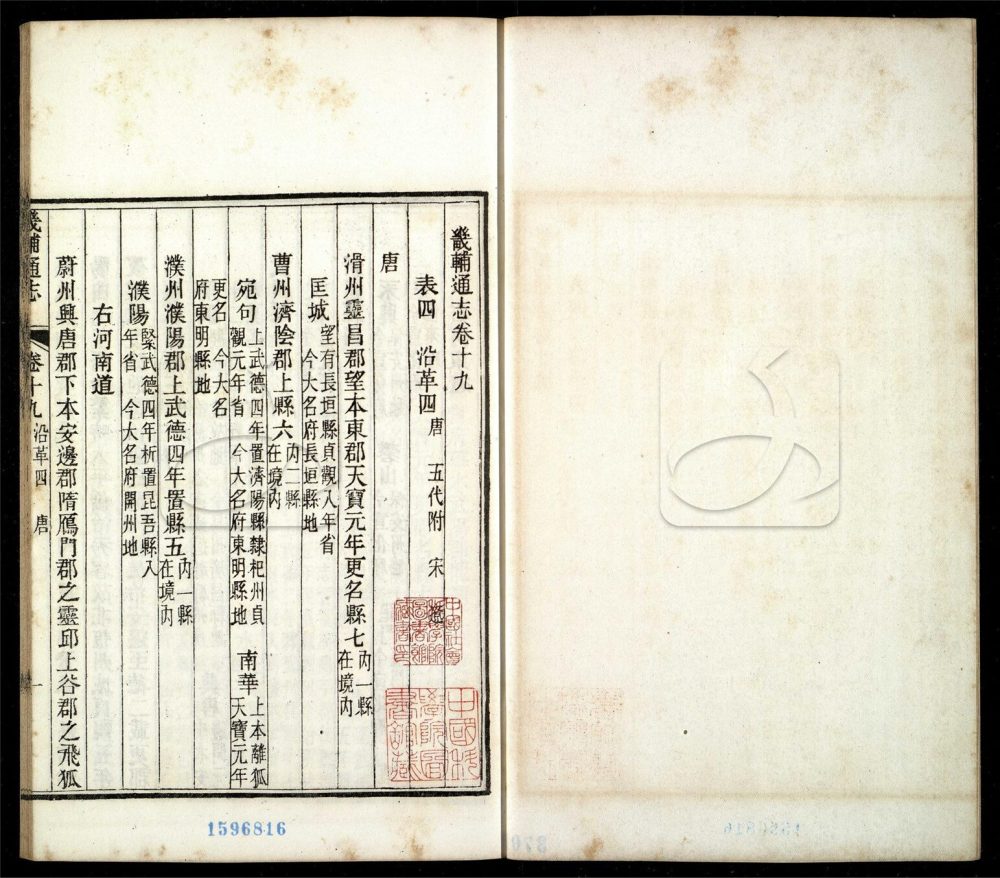 畿輔通志卷十九
表四　沿革四　唐　五代附　宋　遼
唐
滑州靈昌郡望本東郡天寶元年更名縣七內一縣
在境內
匡城望有長垣縣貞觀八年省
今大名府長垣縣地
曹州濟陰郡上縣六內二縣
在境內
宛句上武德四年置濟陽縣隸杞州貞
觀元年省　今大名府東明縣地
南華上本離狐
天寶元年
更名　今大名
府東明縣地
濮州濮陽郡上武德四年置縣五內一縣
在境內
濮陽緊武德四年析置昆吾縣八
年省　今大名府開州地
右河南道
蔚州興唐郡下本安邊郡隋鴈門郡之靈邱上谷郡之飛狐
畿輔通志
卷十九　沿革四　唐
一
1596816